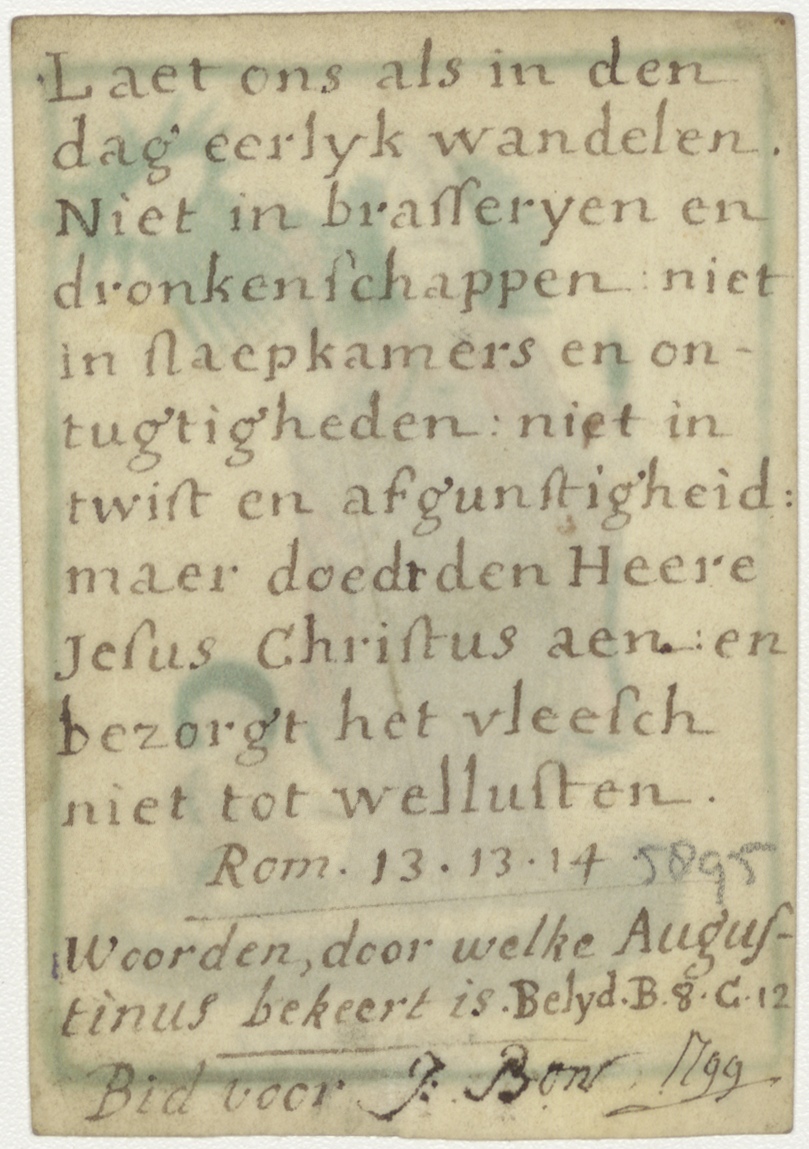 Laet ons als in den
dag eerlyk wandelen.
Niet in braſſeryen en
dronkenſchappen: niet
in ſlaepkamers en on-
tugtigheden: niet in
twiſt en afgunſtigheid:
maer doedt den Heere
Jeſus Chriſtus aen: en
bezorgt het vleeſch
niet tot welluſten.
Rom. 13. 13. 14 5895
Woorden, door welke Auguſ-
tinus bekeert is. Belyd. B. 8. C. 12
Bid voor J: Bon 1799